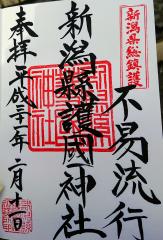 新潟県総鎮護
不易流行
新潟縣護國神社
奉拝平成二十一年二月十一日